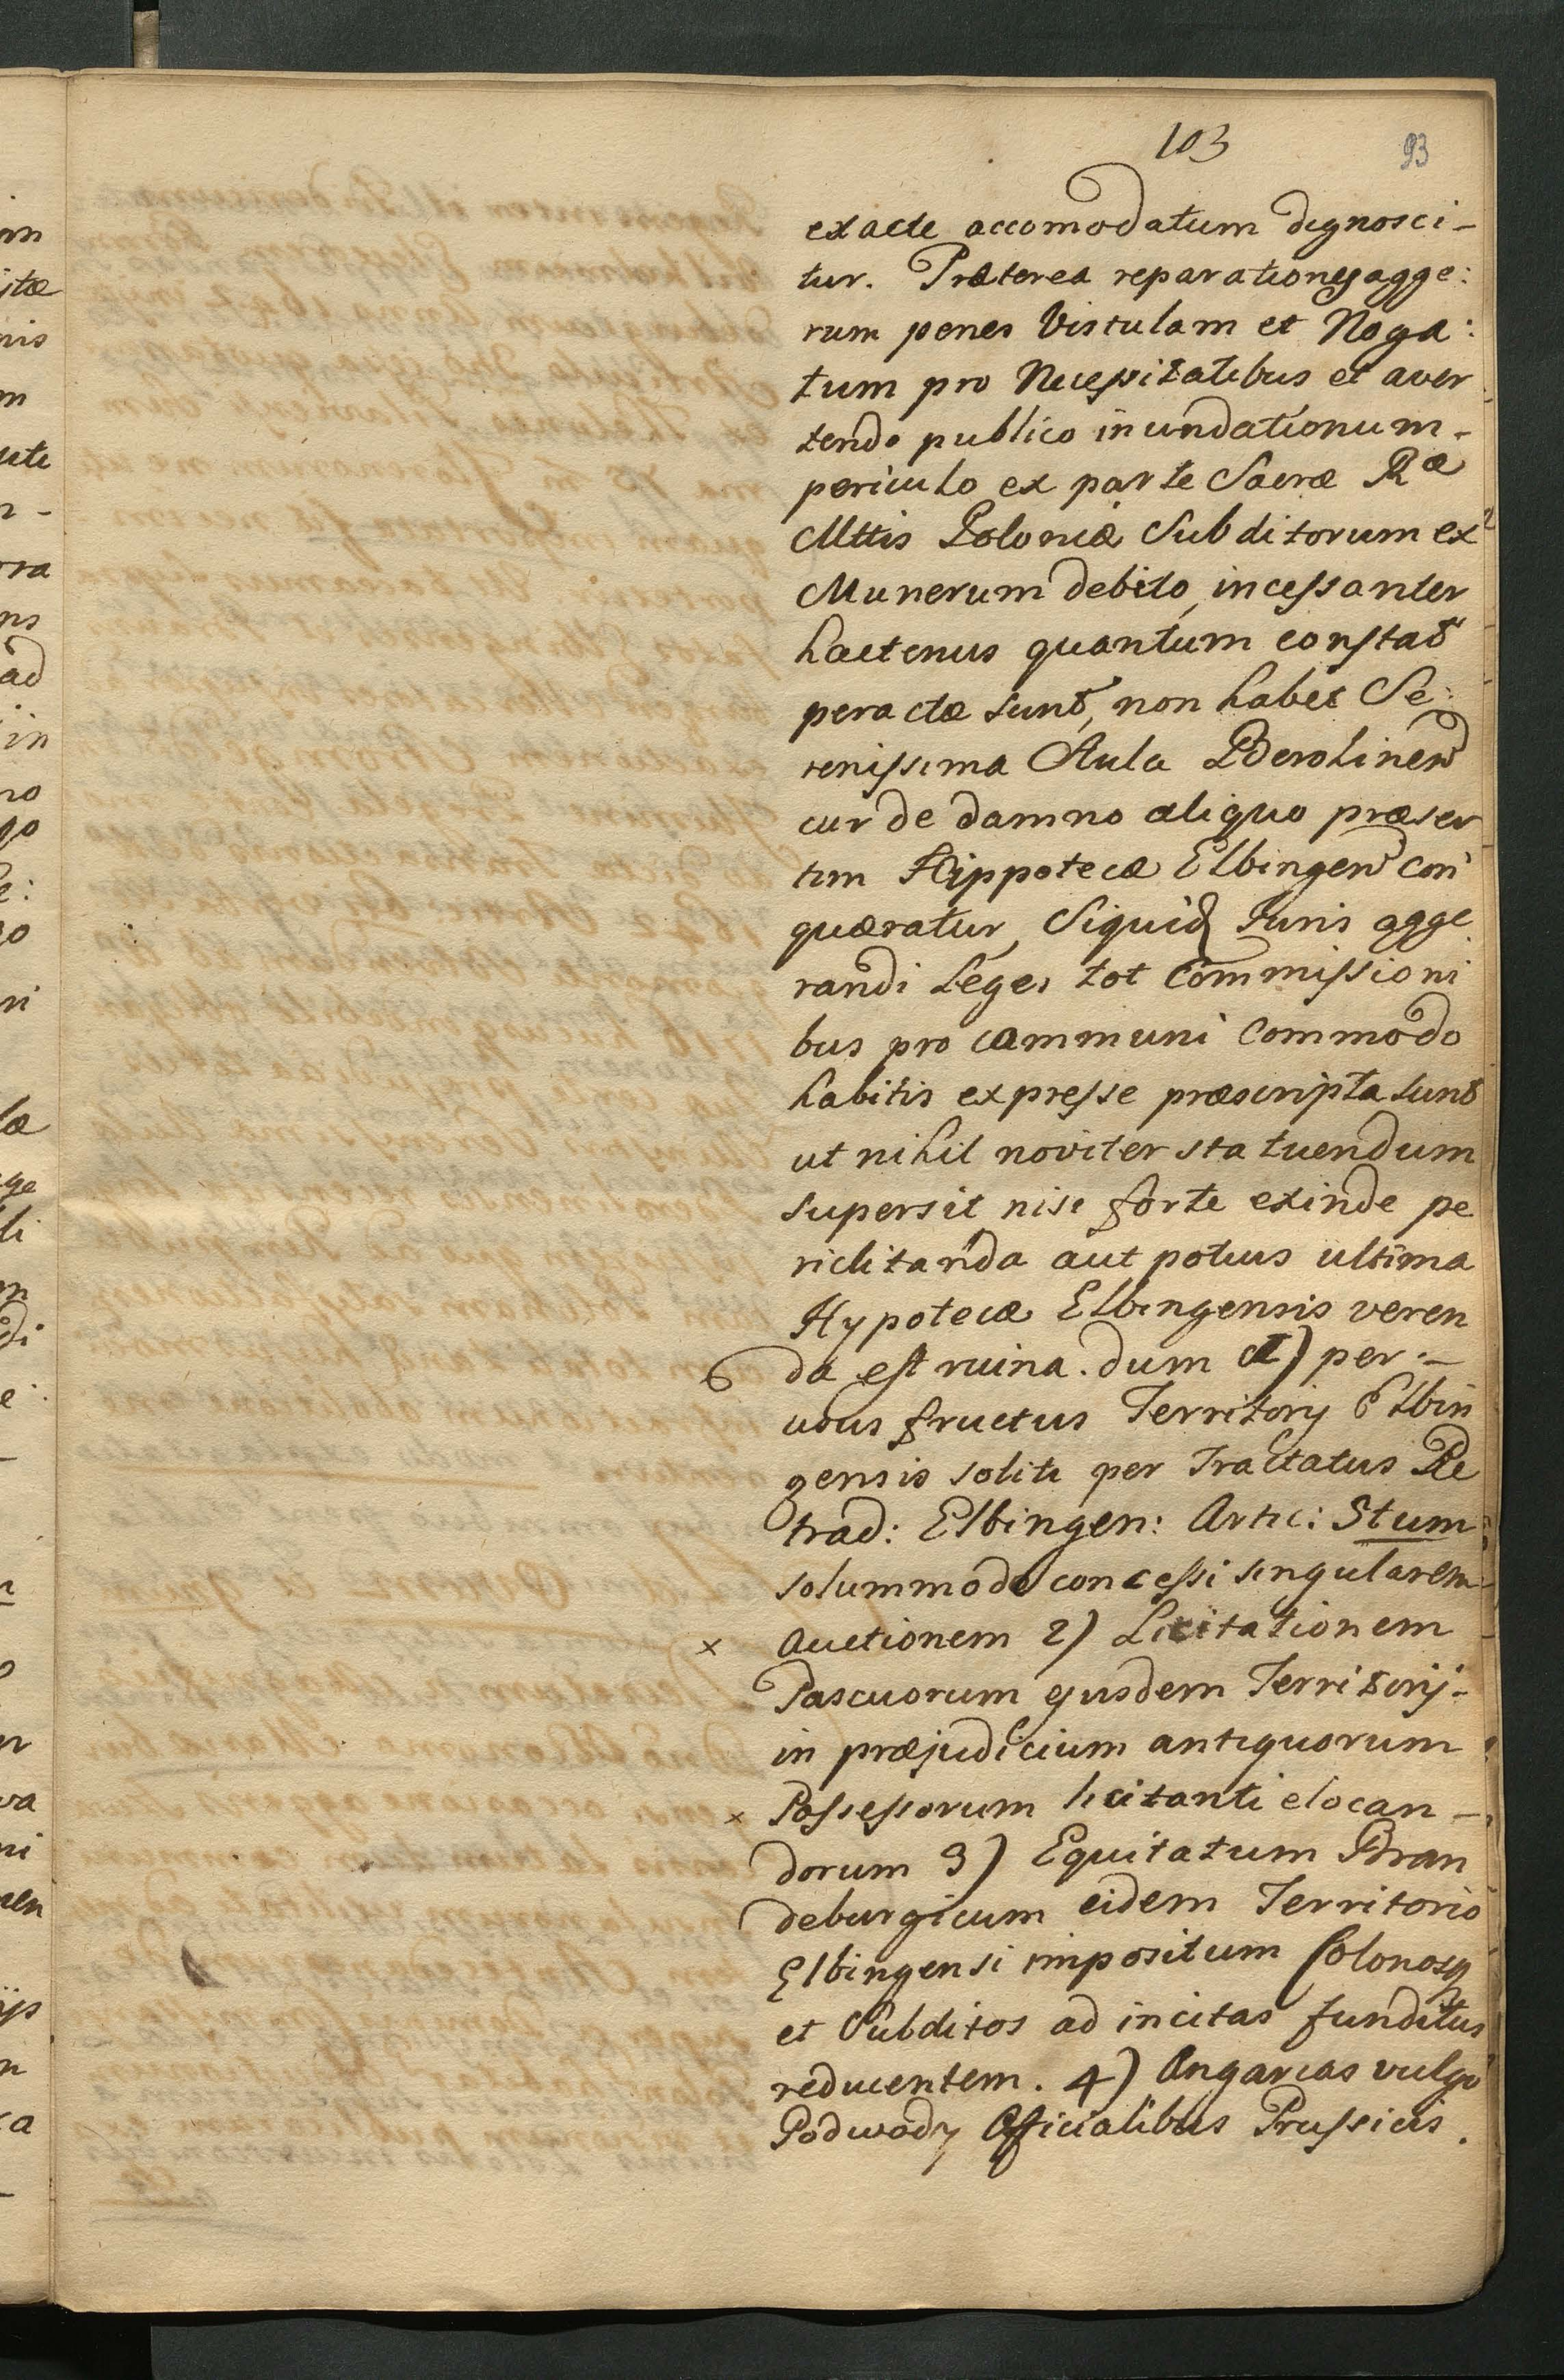 103
93
exacte accomodatum dignosci-
tur. Præterea reparationes agge:
rum penes Vistulam et Noga:
tum pro Necessitatibus et aver
tendo publico inundationum-
periculo ex parte Sacræ Ræ
Mttis Poloniæ Subditorum ex
Munerum debito, incessanter
hactenus quantum constat
peractæ sunt, non habet Se:
renissima Aula Berolinen
cur de damno aliquo præser
tim Hippotecæ Elbingen con
quæratur, Siquid Juris agge
randi Leges tot Commissioni
bus pro communi Commodo
habitis expresse præscripta sunt
ut nihil noviter statuendum
supersit nisi forte exinde pe
riclitanda aut potius ultima
Hypotecæ Elbingensis veren
da est ruina. dum 1) per.-
usus fructus Territorij Elbin
gensis soliti per Tractatus Re
trad: Elbingen: Artic: Stum
solummodo concessi singularem
x Auctionem 2) Licitationem
Pascuorum ejusdem Territorij-
in præjudicium antiquorum
x Possessorum licitanti elocan-
dorum 3) Equitatum Bran
deburgicum eidem Territorio
Elbingensi impositum Colonosq
et Subditos ad incitas funditus
reducentem. 4) Angarias vulgo
Podwody Officialibus Prussicis.